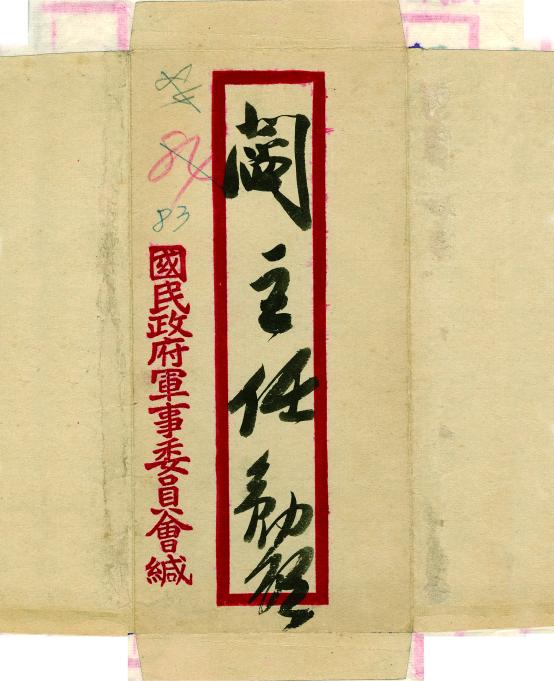 閻主任勛啟
84
84
83
國民政府軍事委員會緘